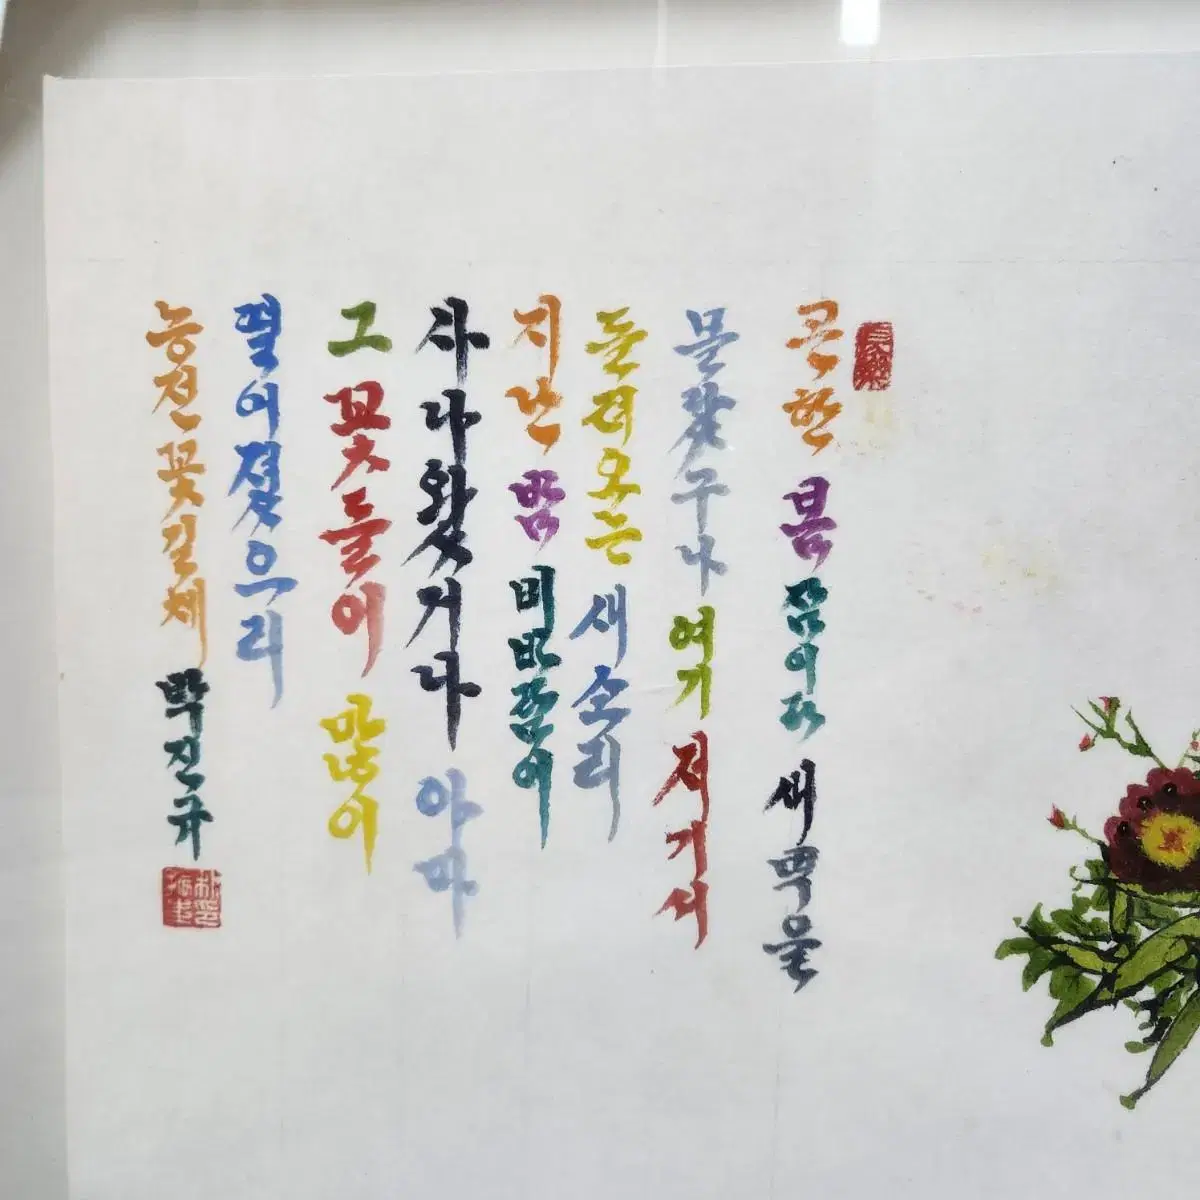 곤한 봄 잠이라 새벽을
몰랐구나 여기 저기서
들려오는 새소리
지난 밤 비바람이
사나왔거나 아마
그 꽃들이 많이
떨어졌으리
능전꽃길체 박진규